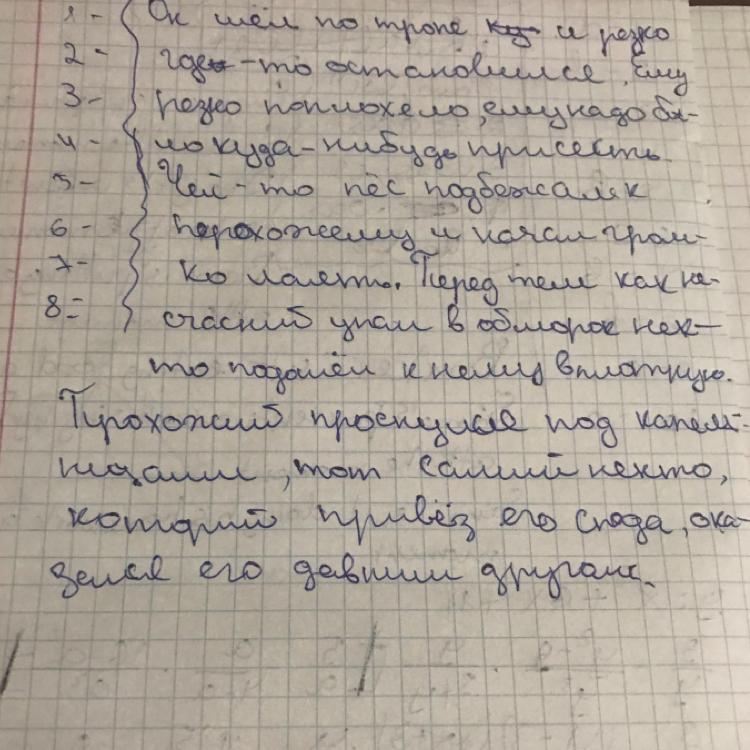 1- Он шёл по тропе и резко
2- где-то остановился. Ему
3- резко поплохело, ему надо бы-
4- ло куда-нибудь присесть.
5- Чей-то пёс подбежал к
6- прохожему и начал гром-
7- ко лаять. Перед тем как не-
8- счасний упал в обморок нек-
то подошёл к нему вплотную.
Прохожий проснулся под капель-
ницами, тот самий некто,
который привёз его сюда, ока-
зался его давним другом.